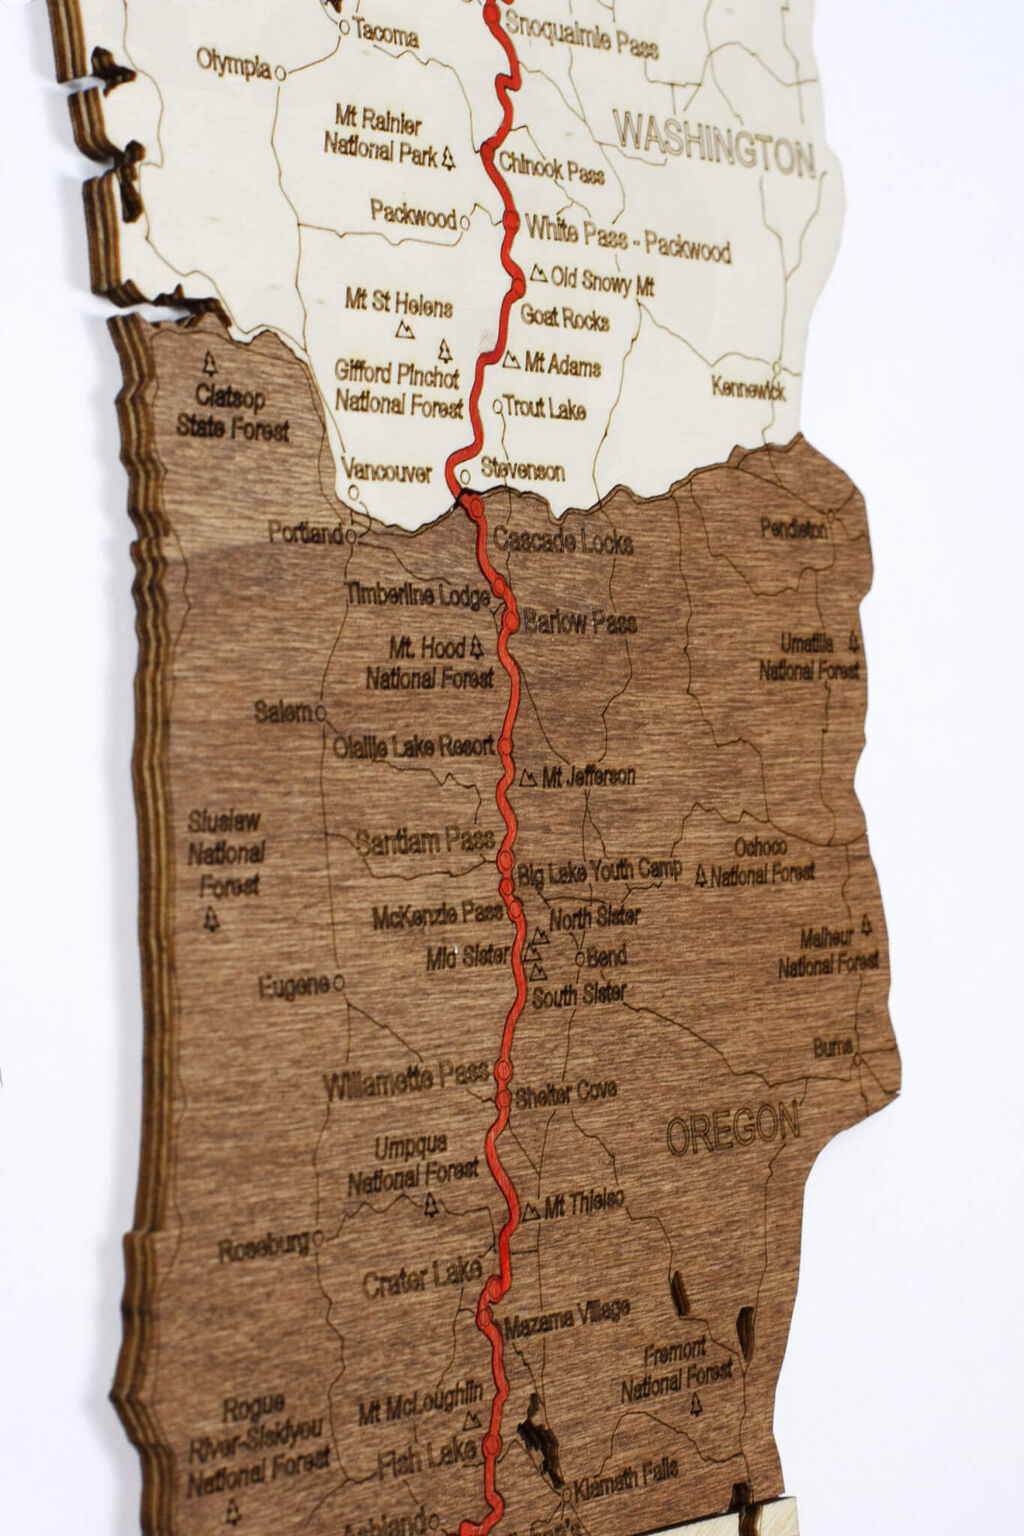 Snoqualmie Pass
Tacoma
Olympia
Mt Rainier
National Park
WASHINGTON
Chinook Pass
Packwood
White Pass - Packwood
Old Snowy Mt
Mt St Helens
Goat Rocks
Mt Adams
Gifford Pinchot
National Forest
Kennewick
Trout Lake
Clatsop
State Forest
Vancouver
Stevenson
Portland
Cascade Locks
Pendleton
Timberline Lodge
Barlow Pass
Mt. Hood
National Forest
Umatilla
National Forest
Salem
Olallie Lake Resort
Mt Jefferson
Siuslaw
National
Forest
Santiam Pass
Big Lake Youth Camp
Ochoco
National Forest
McKenzie Pass
North Sister
Mid Sister
Bend
Malheur
National Forest
Eugene
South Sister
Burns
Willamette Pass
Shelter Cove
OREGON
Umpqua
National Forest
Mt Thielso
Roseburg
Crater Lake
Mazama Village
Fremont
National Forest
Rogue
River-Siskiyou
National Forest
Mt McLoughlin
Fish Lake
Klamath Falls
Ashland